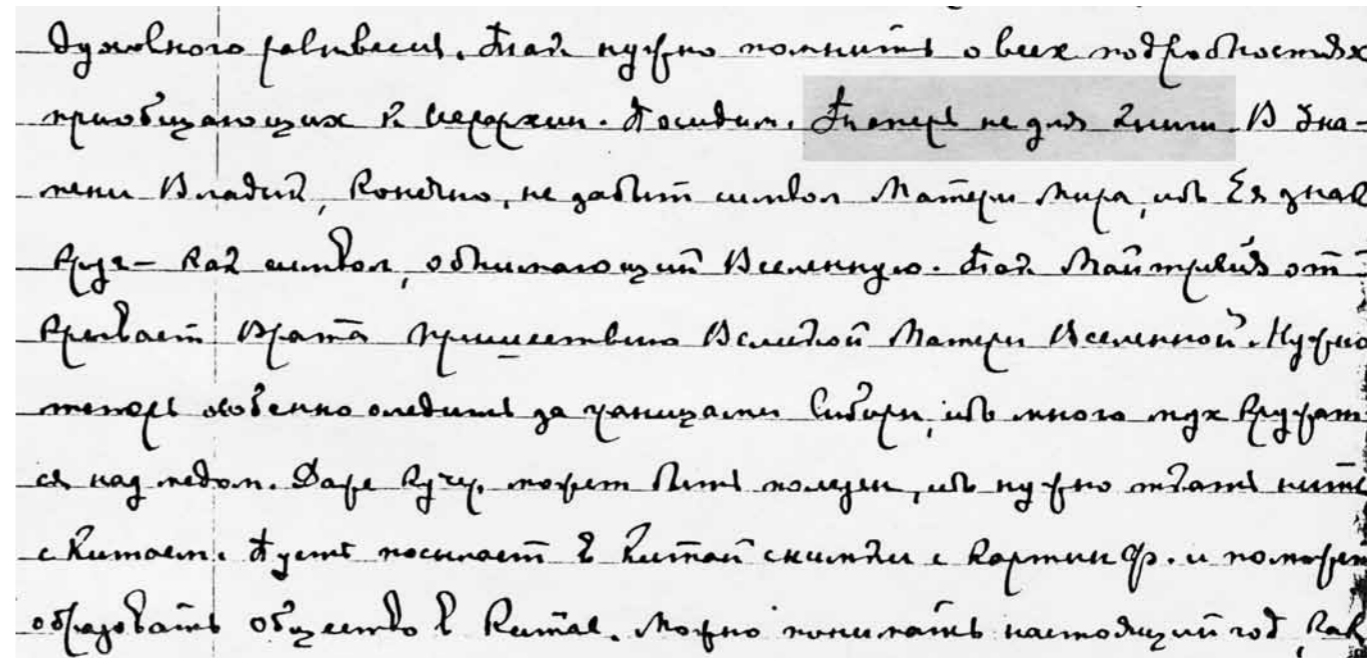 духовного равновесия. Так нужно помнить о всех подробностях
приобщающих к Иерархии. Посидим. Теперь не для книги. В Зна-
мени Владык, конечно, не забыт символ Матери Мира, ибо Её знак
круга – как символ, обнимающий Вселенную. Так Майтрейя от-
крывает Врата пришествию Великой Матери Вселенной. Нужно
теперь особенно следить за границами Сибири, ибо много мух кружат-
ся над медом. Даже Кучер. может быть полезен, ибо нужно ткать нить
с Китаем. Пусть посылает в Китай снимки с картин Ф. и поможет
образовать общество в Китае. Можно понимать настоящий год, как